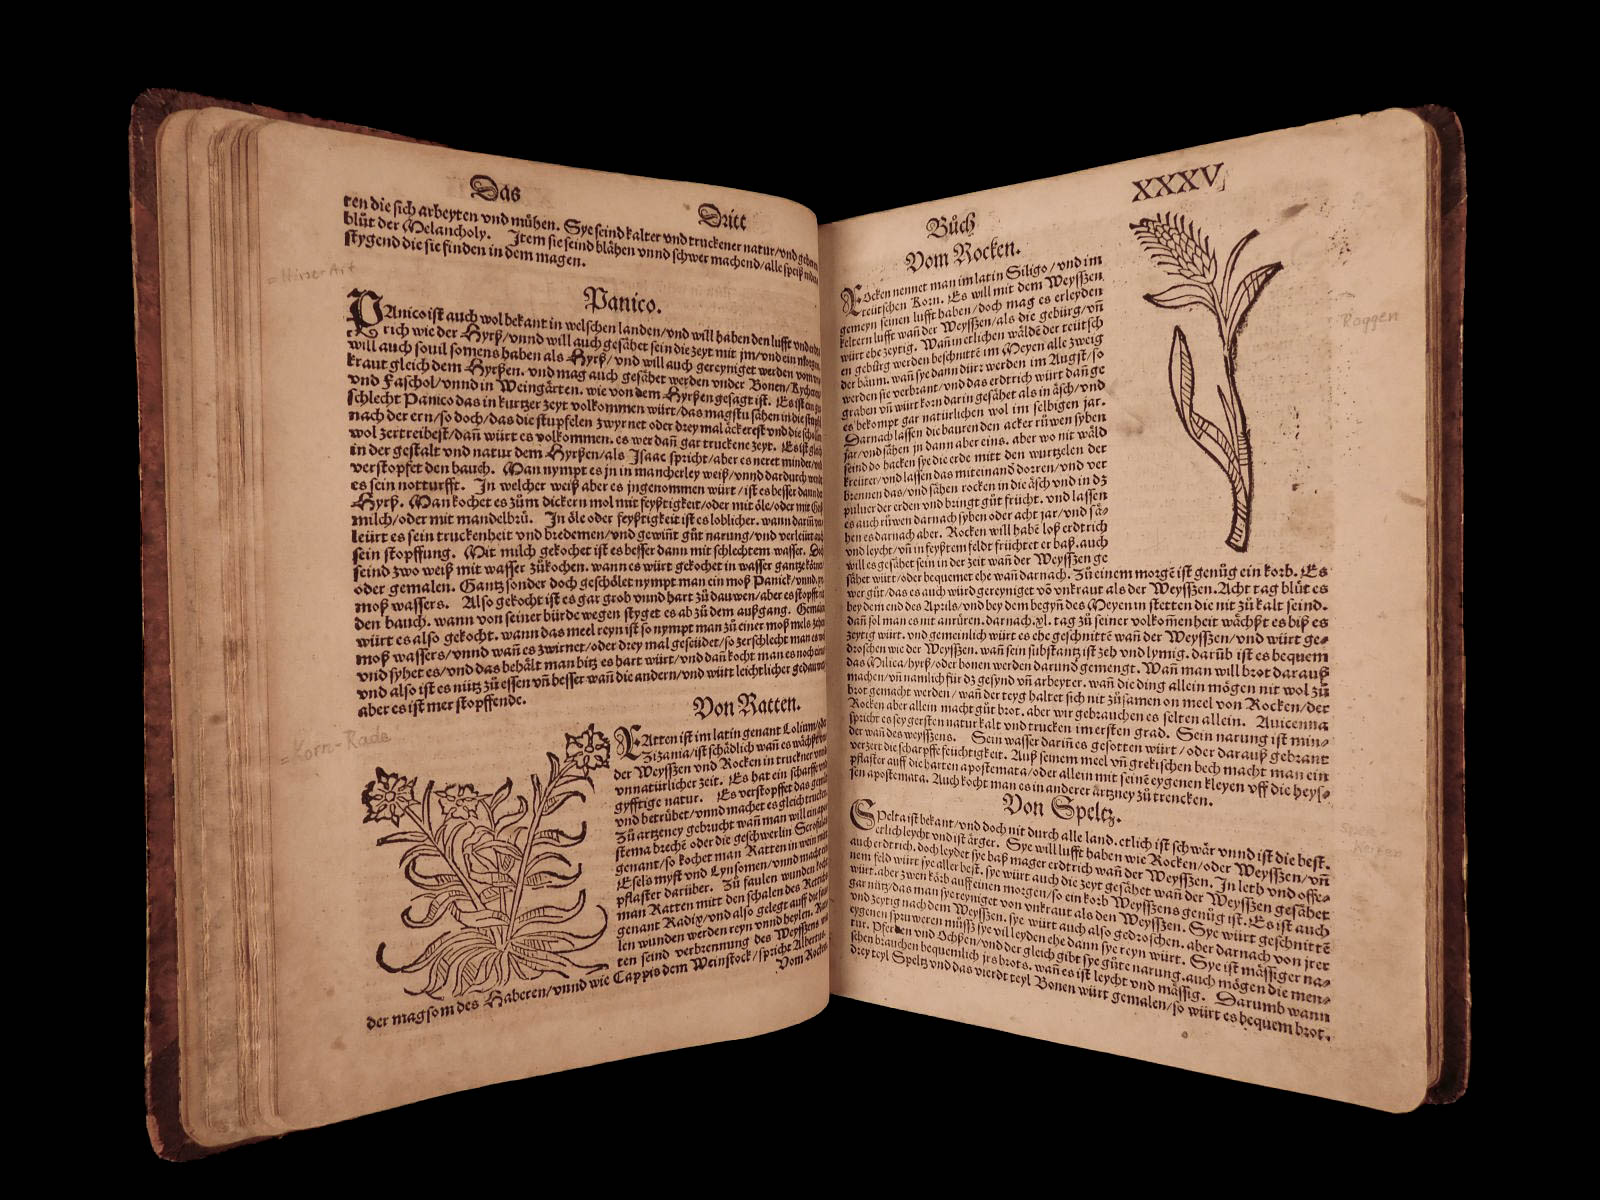 Das
Dritt
ten die sich arbeyten vnd mühen. Sye seind kalter vnd truckener natur/vnd geben
blüt der Melancholy. Item sie seind blähen vnnd schwer machend/alle speiß
stygend die sie finden in dem magen.
= Hirse-Art
Panico.
PAnico ist auch wol bekant in welschen landen/vnd will haben den lufft vnd
rich wie der Hyrß/vnnd will auch gesähet sein die zeyt mit jm/vnd ein morgen
will auch souil somens haben als Hyrß/vnd will auch gereyniget werden vom
kraut gleich dem Hyrßen. vnd mag auch gesähet werden vnder Bonen/Kychern
vnd Faschol/vnnd in Weingärten. wie von dem Hyrßen gesagt ist. Es ist ein
schlecht Panico das in kurtzer zeyt volkommen würt/das magstu sähen in die
nach der ern/so doch/das die stupfelen zwyrnet oder drey mal äckerest vnd die
wol zertreibest/dañ würt es volkommen. es wer dañ gar truckene zeyt. Es ist gleich
in der gestalt vnd natur dem Hyrßen/als Isaac spricht/aber es neret minder/vnd
verstopfet den bauch. Man nympt es jn in mancherley weiß/vnnd dardurch
es sein notturfft. In welcher weiß aber es jngenommen würt/ist es besser dann der
Hyrß. Man kochet es zům dickern mol mit feyßtigkeit/oder mit öle/oder mit
milch/oder mit mandelbrü. In öle oder feyßtigkeit ist es loblicher. wann dariñ
leürt es sein truckenheit vnd bredemen/vnd gewiñt gůt narung/vnd verleürt auch
sein stopffung. Mit milch gekochet ist es besser dann mit schlechtem wasser.
seind zwo weiß mit wasser zůkochen. wann es würt gekochet in wasser gantze
oder gemalen. Gantz sonder doch geschölet nympt man ein moß Panick/vnnd
moß wassers. Also gekocht ist es gar grob vnnd hart zů dauwen/aber es stopfft nit
den bauch. wann von seiner bürde wegen styget es ab zů dem außgang. Gemalen
würt es also gekocht. wann das meel reyn ist so nympt man zů einer moß mels
moß wassers/vnnd wañ es zwirnet/oder drey mal gesüdet/so zerschlecht man es
vnd syhet es/vnd das behält man bitz es hart würt/vnd dañ kocht man es noch
vnd also ist es nütz zů essen vñ besser wañ die andern/vnd würt leichtlicher gedauwet
aber es ist mer stopffende.
Von Ratten.
= Korn-Rade
RAtten ist im latin genant Lolium/oder
Zizania/ist schädlich wañ es wächßt
der Weyssen vnd Rocken in truckner vnnd
vnnatürlicher zeit. Es hat ein scharffe vnd
gyfftige natur. Es verstopffet das
vnd betrübet/vnnd machet es gleich truncken
Zů artzeney gebrucht wañ man will ein apo
stema brechē oder die geschwer in Scrofulas
genant/so kochet man Ratten in wein mit
Esels myst vnd Lynsomen/vnnd macht ein
pflaster darüber. Zů faulen wunden kocht
man Ratten mitt den schalen des Rettichs
genant Radix/vnd also gelegt auff die
len wunden werden reyn vnnd heylen.
ten seind verbrennung des Weyssens
der mag som des Haberen/vnnd wie Cappis dem Weinstock/spricht Albertus.
Vom Rocken
XXXV.
Bůch
Vom Rocken.
ROcken nennet man im latin Siligo/vnd im
teütschen Korn. Es will mit dem Weyssen
gemeyn seinen lufft haben/doch mag es erleyden
keltern lufft wañ der Weyssen/als die gebürg/vñ
würt ehe zeytig. Wañ in etlichen wäldē der teütsch
en gebürg werden beschnittē im Meyen alle zweig
der bäum. wañ sye dann dürr werden im Augst/so
werden sie verbrant/vnd das erdtrich würt dañ ge
graben vñ würt korn dar in gesähet als in äsch/vnd
es bekompt gar natürlichen wol im selbigen jar.
Darnach lassen die bauren den acker rüwen syben
jar/vnd sähen jn dann aber eins. aber wo nit wäld
seind do hacken sye die erde mitt den wurtzelen der
kreütter/vnd lassen das miteinand dorren/vnd ver
brennen das/vnd sähen rocken in die äsch vnd in dz
puluer der erden vnd bringt gůt frücht. vnd lassen
es auch rüwen darnach syben oder acht jar/vnd sä-
hen es darnach aber. Rocken will habē loß erdtrich
vnd leycht/vñ in feyßtem feldt früchtet er baß. auch
will es gesähet sein in der zeit wañ der Weyssen ge
sähet würt/oder bequemet ehe wañ darnach. Zů einem morgē ist genůg ein korb. Es
wer gůt/das es auch würd gereyniget võ vnkraut als der Weyssen. Acht tag blüt es
bey dem end des Aprils/vnd bey dem begyñ des Meyen in stetten die nit zů kalt seind.
dañ sol man es nit anrüren. darnach .xl. tag zů seiner volkommenheit wächßt es biß es
zeytig würt. vnd gemeinlich würt es ehe geschnittē wañ der Weyssen/vnd würt ge-
droschen wie der Weyssen. wañ sein substantz ist zeh vnd lymig. darūb ist es bequem
das Milica/hyrß/oder bonen werden darund gemengt. Wañ man will brot darauß
machen/vñ namlich für dz gesynd vñ arbeyter. wañ die ding allein mögen nit wol zů
brot gemacht werden/wañ der teyg haltet sich nit zůsamen on meel von Rocken/der
Rocken aber allein macht gůt brot. aber wir gebrauchen es selten allein. Auicenna
spricht es sey gersten natur kalt vnd trucken im ersten grad. Sein narung ist min-
der wañ des weyssens. Sein wasser dariñ es gesotten würt/oder darauß gebrant
verzert die scharpffe feüchtigkeit. Auß seinem meel vñ grekischen bech macht man ein
pflaster auff die harten apostemata/oder allein mit seinē eygenen kleyen vff die heys-
sen apostemata. Auch kocht man es in anderer ärtzney zů trencken.
Roggen
Von Speltz.
SPelta ist bekant/vnd doch nit durch alle land. etlich ist schwär vnnd ist die best.
etlich leycht vnd ist ärger. Sye will lufft haben wie Rocken/oder Weyssen/vñ
auch erdtrich. doch leydet sye baß mager erdtrich wañ der Weyssen. In leth vnd offe-
nem feld würt sye aller best. sye würt auch die zeyt gesähet wañ der Weyssen gesähet
würt. aber zwen körb auff einen morgen/so ein korb Weyssens genůg ist. Es ist auch
gar nütz/das man sye reyniget von vnkraut als den Weyssen. Sye würt geschnittē
vnd zeytig nach dem Weyssen. sye würt auch also gedroschen. aber darnach von jrer
eygenen sprüweren můß sye vil leyden ehe dann sye reyn würt. Sye ist mässiger na-
tur. Pferden vnd Ochßen/vnd der gleich gibt sye gůte narung. auch mögen die men-
schen brauchen bequemlich jrs brots. wañ es ist leycht vnd mässig. Darumb wann
drey teyl Speltz vnd das vierdt teyl Bonen würt gemalen/so würt es bequem brot.